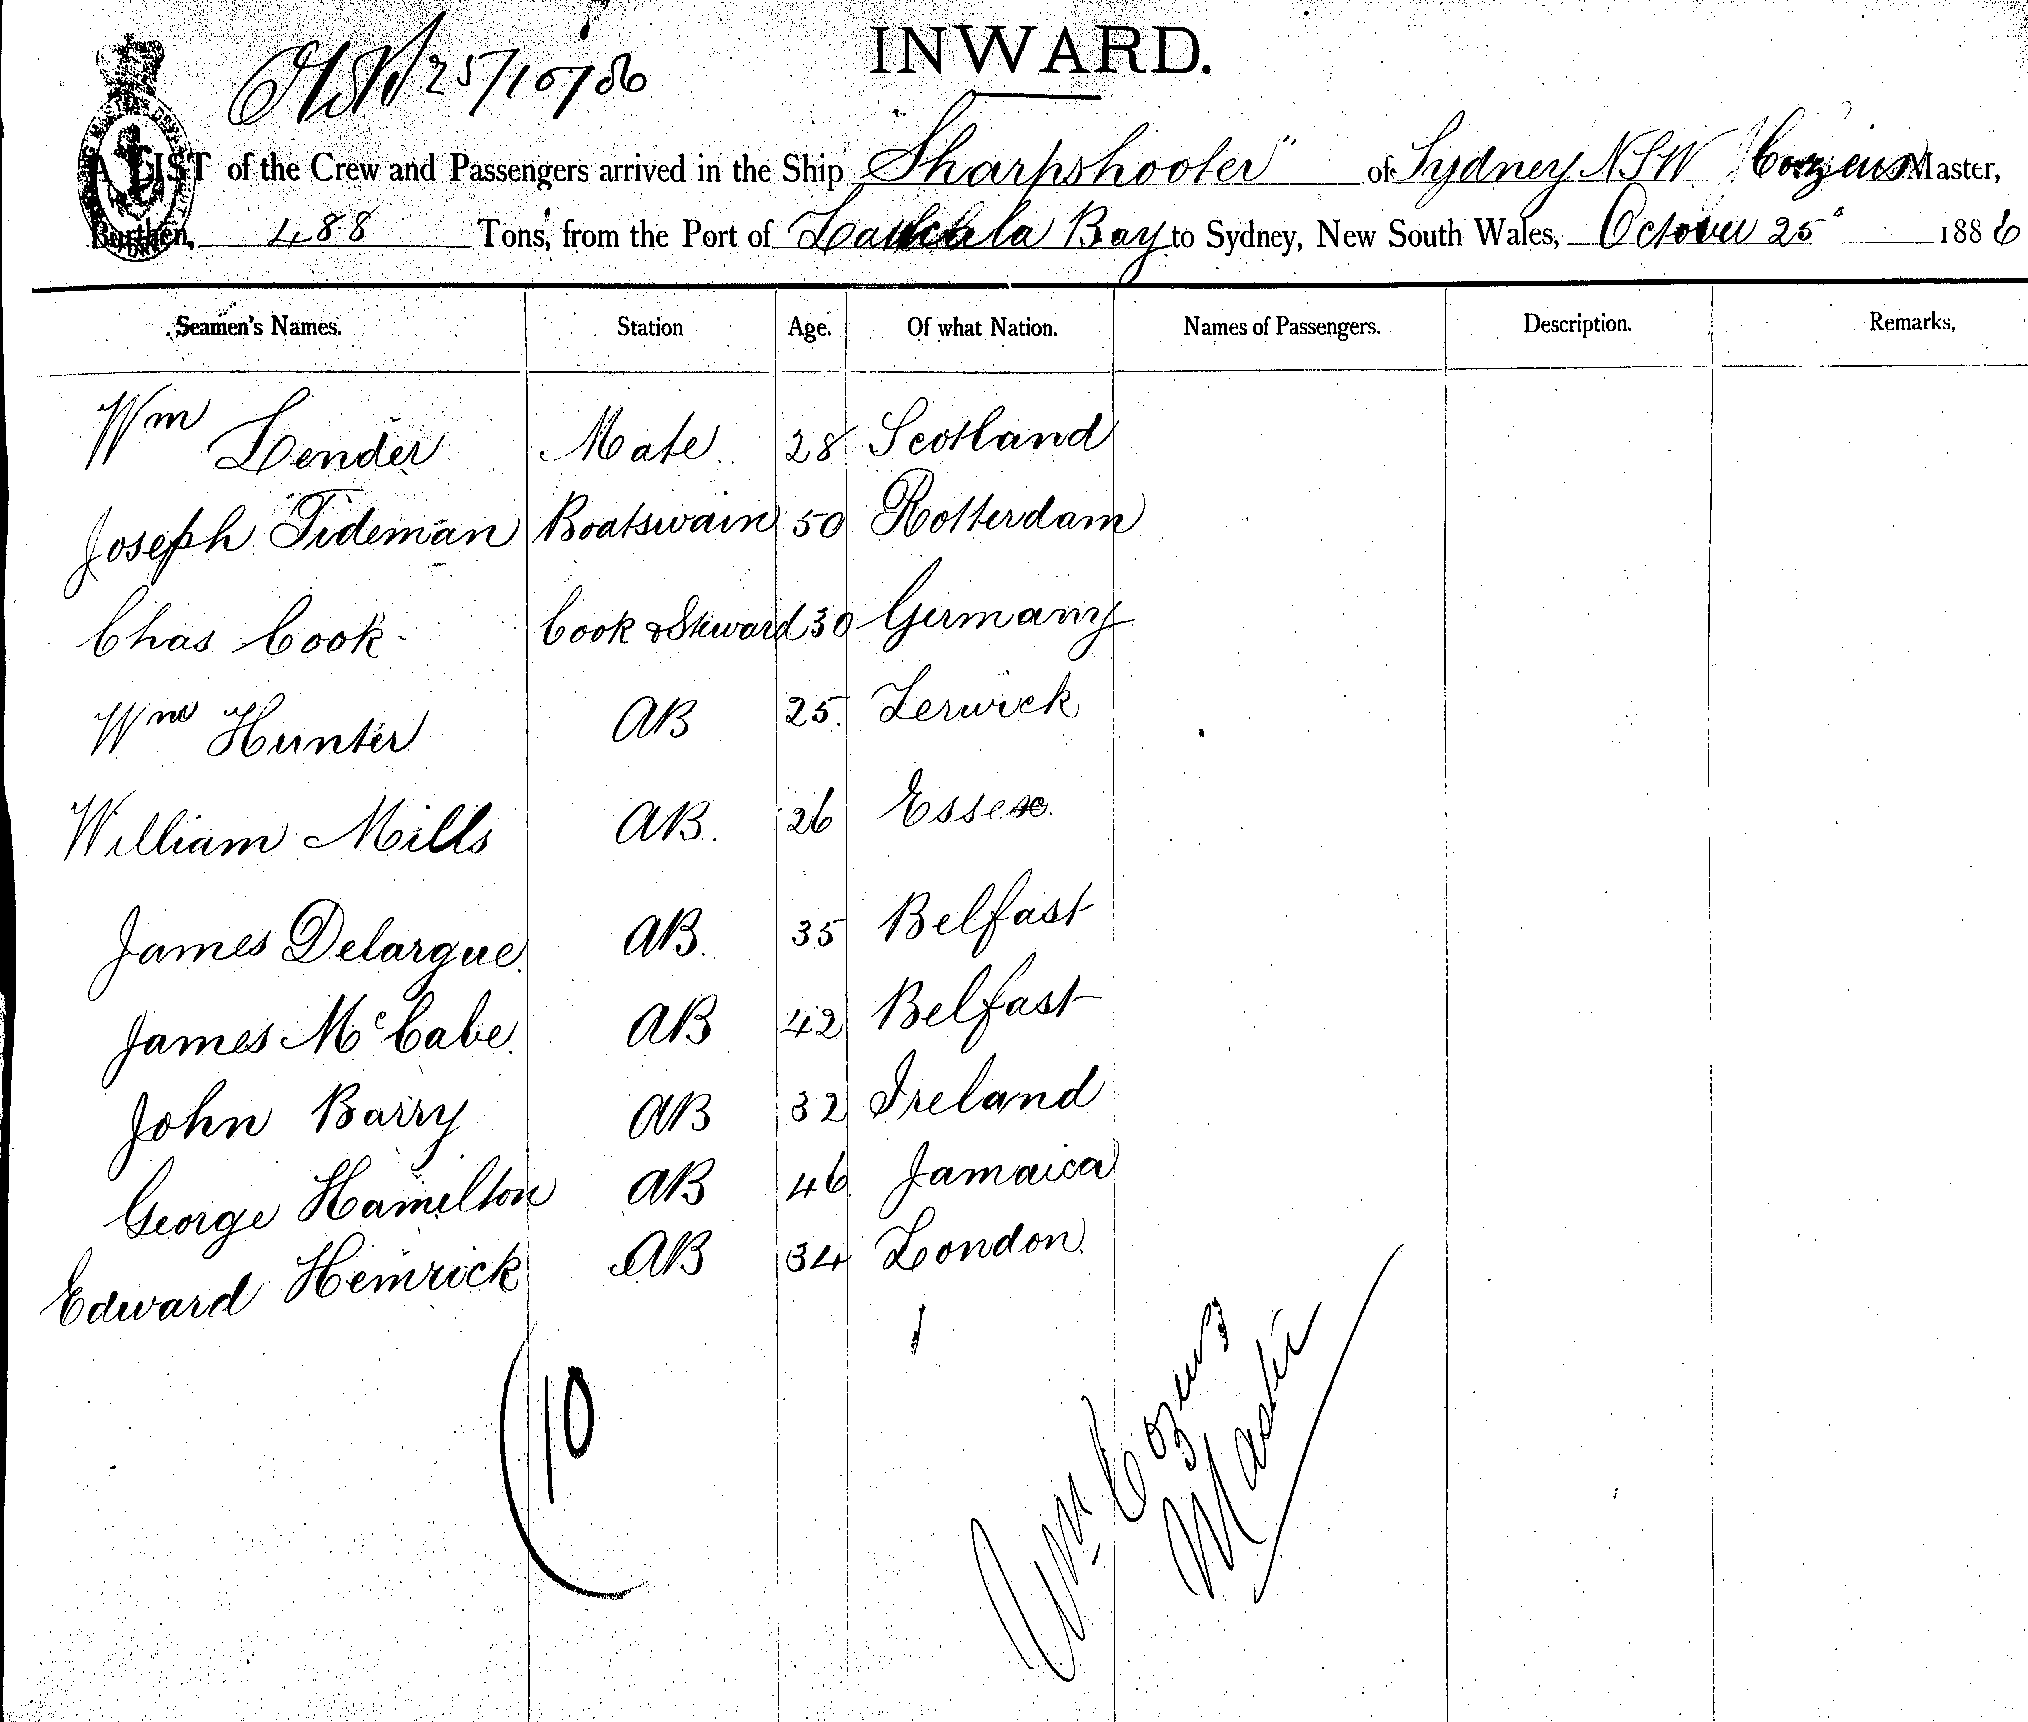 25/10/86
INWARD.
A LIST of the Crew and Passengers arrived in the Ship "Sharpshooter" of Sydney NSW Cozens Master,
Burthen, 488 Tons, from the Port of Lauchla Bay to Sydney, New South Wales, October 25" 1886
Seamen's Names. Station Age. Of what Nation. Names of Passengers. Description. Remarks,
Wm Lender Mate 28 Scotland
Joseph Tideman Boatswain 50 Rotterdam
Chas Cook Cook & Steward 30 Germany
Wm Hunter AB 25 Lerwick
William Mills AB. 26 Essex
James Delargue AB. 35 Belfast
James McCabe AB 42 Belfast
John Barry AB 32 Ireland
George Hamilton AB 46 Jamaica
Edward Hemrick AB 34 London
10
Wm Cozens
Master